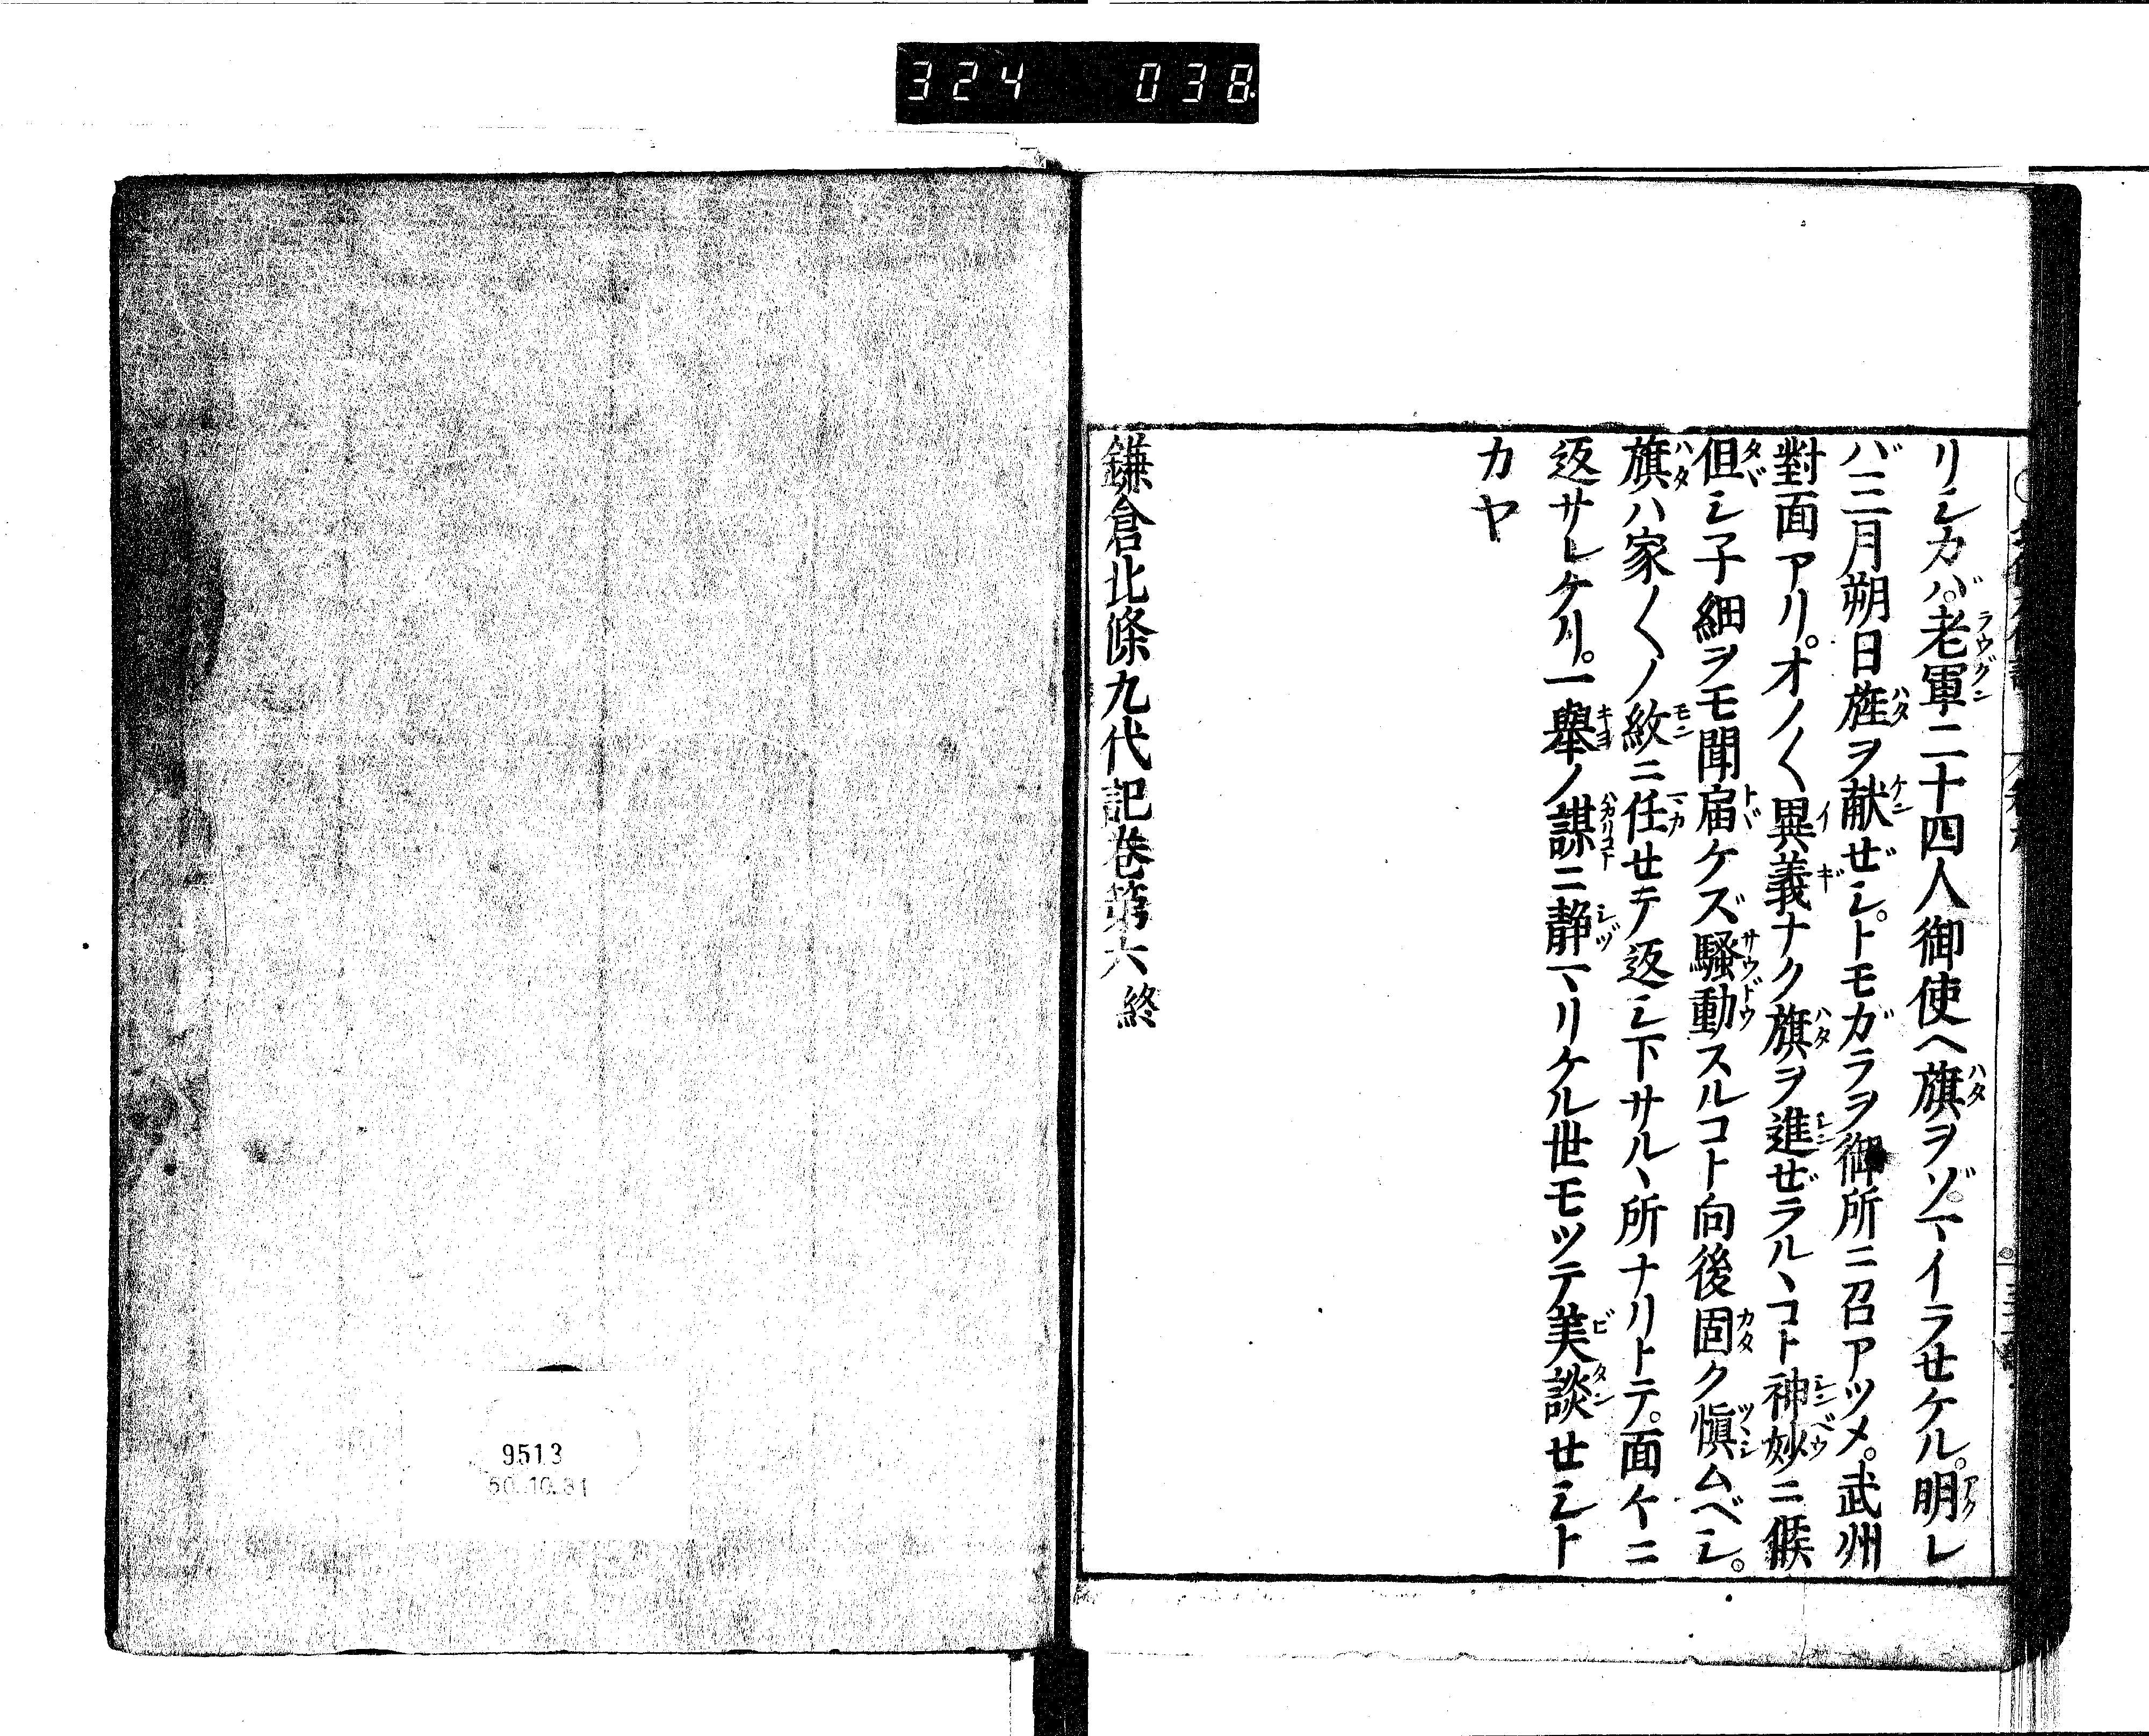 324 038.
リシカバ。老軍二十四人御使ヘ旗ヲゾ。マイラセケル。明レ
バ三月朔日旌ヲ献ゼシ。トモガラヲ御所ニ召アツメ。武州
對面アリ。オノ〱異義ナク旗ヲ進ゼラルヽコト神妙ニ候
但シ子細ヲモ聞届ケズ騒動スルコト向後固ク慎ムベシ。
旗ハ家〱ノ紋ニ任セテ返シ下サルヽ所ナリトテ。面ケニ
返サレケリ。一舉ノ謀ニ静マリケル世モツテ美談セシト
カヤ
鎌倉北條九代記卷第六終
9513
50.10.31